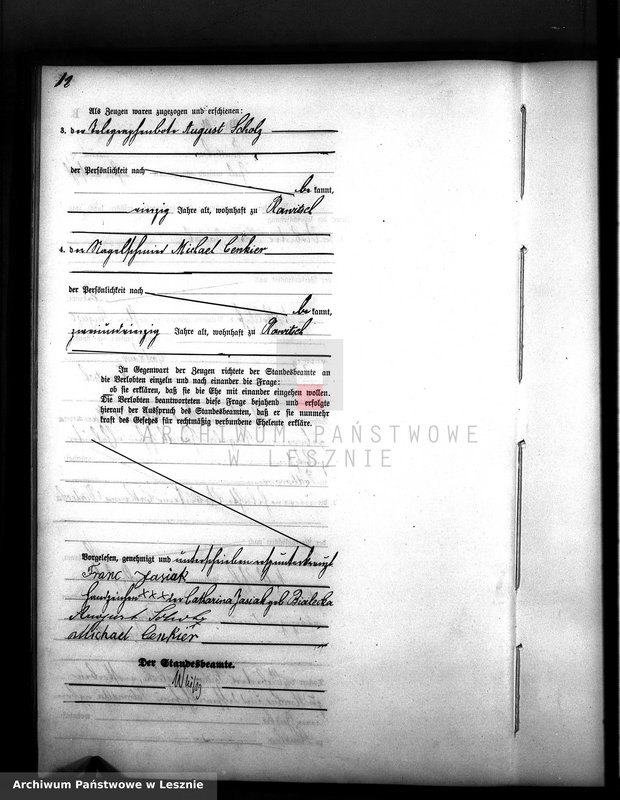 18
Als Zeugen waren zugezogen und erschienen:
3. der Telegraphenbote August Scholz
der Persönlichkeit nach
be kannt,
Jahre alt, wohnhaft zu Rawitsch
4. der Nagelschmied Michael Cenkier
der Persönlichkeit nach
be kannt,
Jahre alt, wohnhaft zu Rawitsch
In Gegenwart der Zeugen richtete der Standesbeamte an
die Verlobten einzeln und nach einander die Frage:
ob sie erklären, daß sie die Ehe mit einander eingehen wollen.
Die Verlobten beantworteten diese Frage bejahend und erfolgte
hierauf der Ausspruch des Standesbeamten, daß er sie nunmehr
kraft des Gesetzes für rechtmäßig verbundene Eheleute erkläre.
ARCHIWUM PAŃSTWOWE
W LESZNIE
Vorgelesen, genehmigt und unterschrieben resp. unterkreuzt
Franc Jasiak
Handzeichen XXX der Catharina Jasiak geb Bialecka
August Scholz
Michael Cenkier
Der Standesbeamte.
Archiwum Państwowe w Lesznie